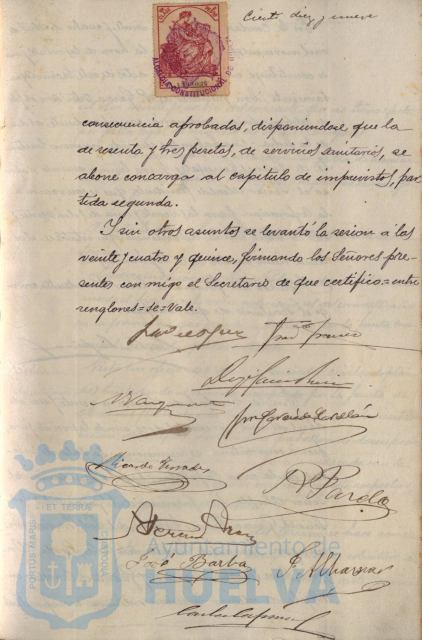 Ciento diez y nueve
ALCALDIA CONSTITUCIONAL DE
consecuencia aprobadas, disponiendose que la
de sesenta y tres pesetas, de servicios sanitarios, se
abone con cargo al capitulo de imprevistos, par-
tida segunda.
Y sin otros asuntos se levantó la sesion á las
veinte y cuatro y quince, firmando los Señores pre-
sentes con migo el Secretario de que certifico = entre
renglones = se = Vale.
Ricardo Terrades
A. Parola
José Barba
PORTUS MARIS ET TERRAE CUSTODIA
Ayuntamiento de
HUELVA